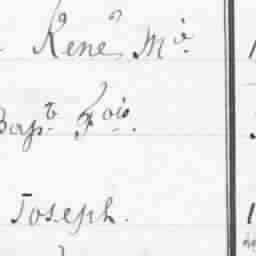 René, Mie.
Bapte Fois.
Joseph.